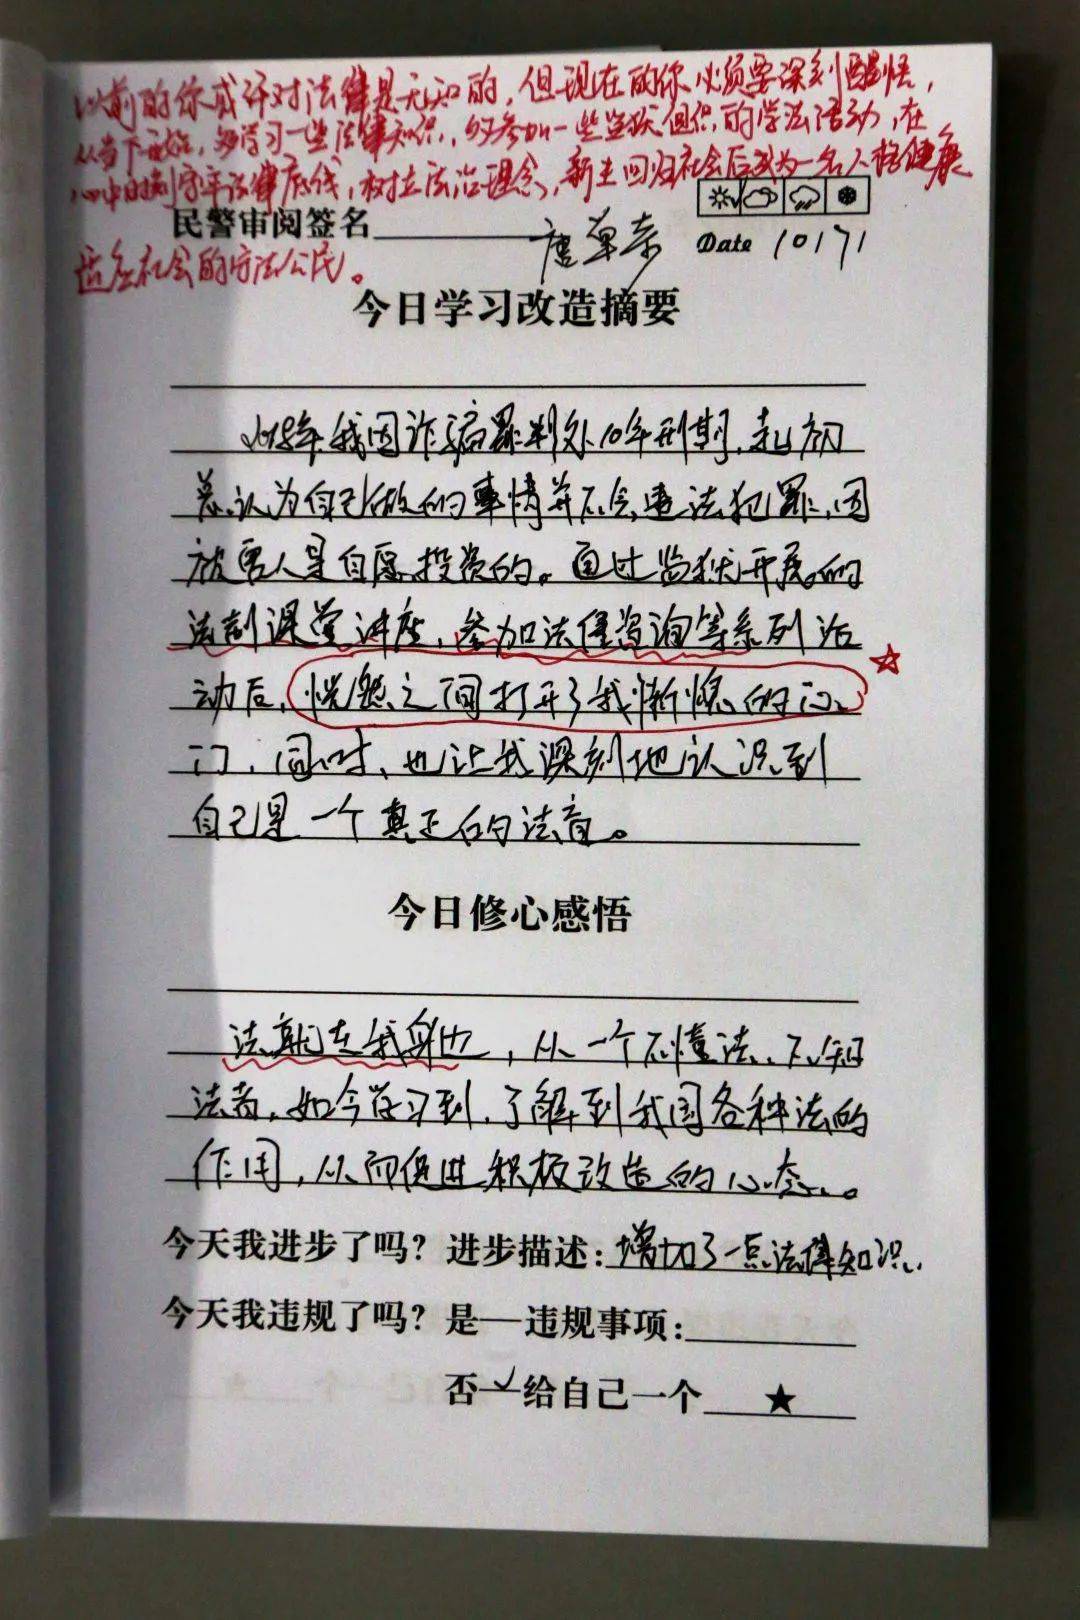 以前的你或许对法律是无知的，但现在的你必须要深刻醒悟，
从当下开始，多学习一些法律知识，多参加一些监狱组织的学法活动，在
心中时刻守牢法律底线，树立法治理念，新生回归社会后成为一名人格健康
民警审阅签名
Date 10171
适应社会的守法公民。
今日学习改造摘要
我因诈骗罪判处10年刑期，起初
总认为自己做的事情并不会违法犯罪，因
被害人是自愿投资的。通过监狱开展的
法制课堂讲座，参加法律咨询等系列活
动后，恍然之间打开了我惭愧的心
门，同时，也让我深刻地认识到
自己是一个真正的法盲。
今日修心感悟
法就在我身边，从一个不懂法、不知
法者，如今学习到，了解到我国各种法的
作用，从而促进积极改造的心态。
今天我进步了吗？进步描述：增加了一点法律知识
今天我违规了吗？是—违规事项：
否—✓给自己一个 ★